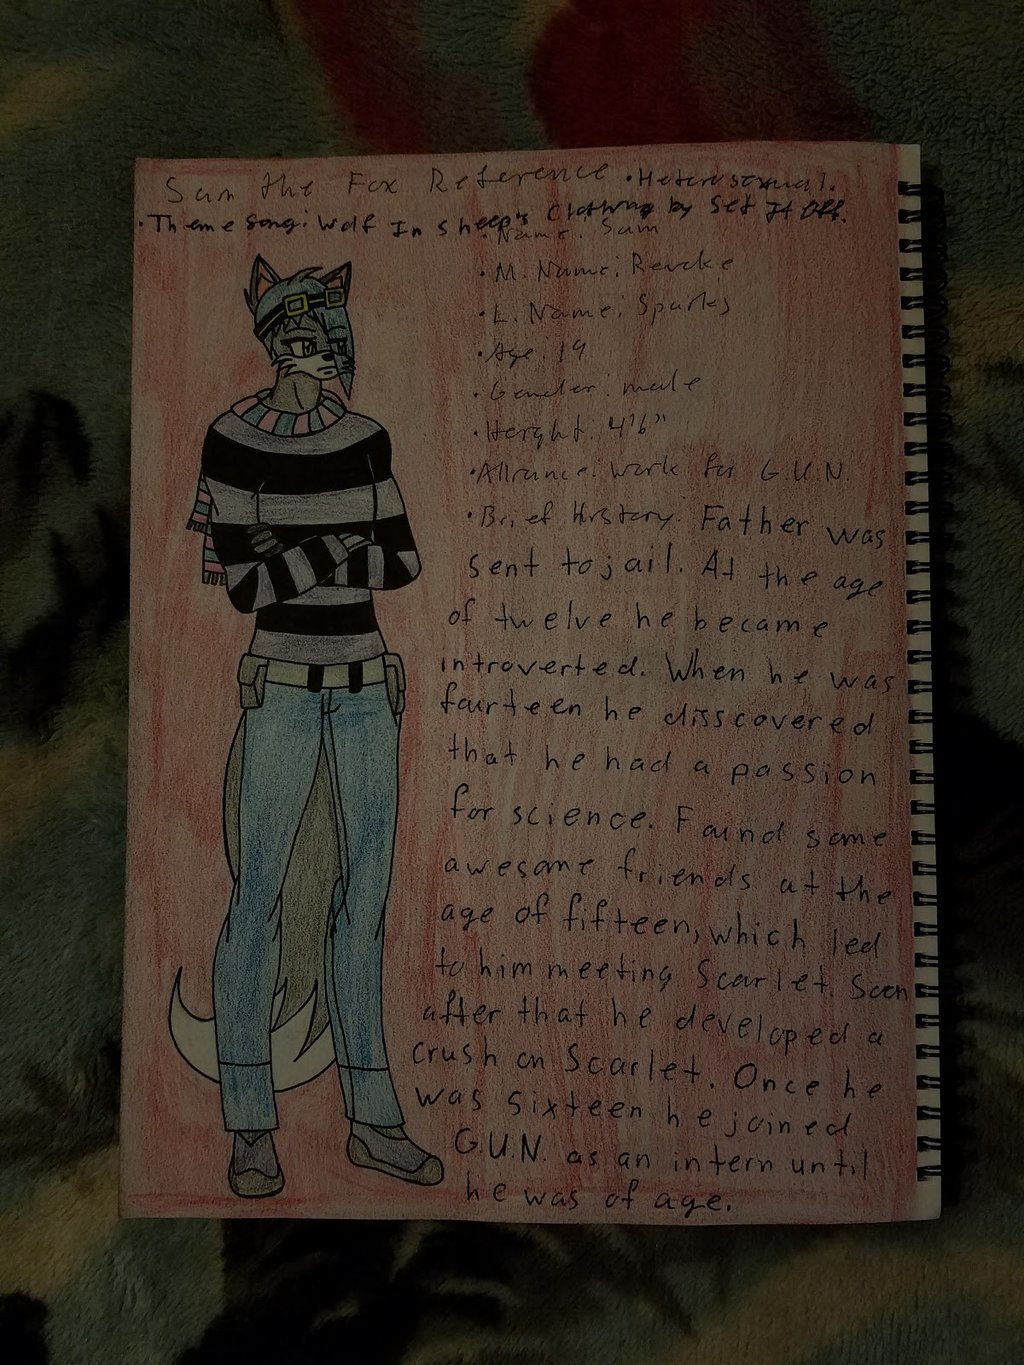 Sam the Fox Reference • Heterosexual.
• Theme song: Wolf In Sheep's Clothing by Set It Off.
• Name: Sam
• M. Name: Revoke
• L. Name: Sparks
• Age: 19
• Gender: male
• Height: 4'6"
• Alliance: Work for G.U.N.
• Brief History: Father was
sent to jail. At the age
of twelve he became
introverted. When he was
fourteen he disscovered
that he had a passion
for science. Found some
awesome friends at the
age of fifteen, which led
to him meeting Scarlet. Soon
after that he developed a
crush on Scarlet. Once he
was sixteen he joined
G.U.N. as an intern until
he was of age.